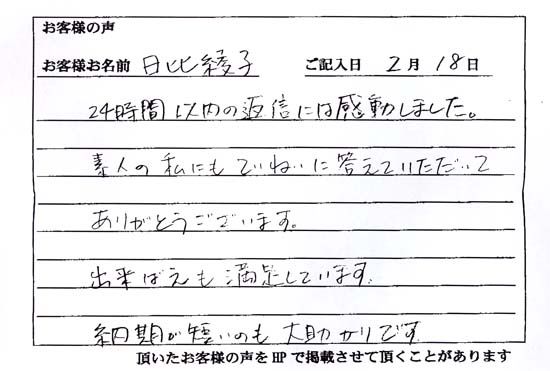 お客様の声
お客様お名前 日比綾子 ご記入日 2月18日
24時間以内の返信には感動しました。
素人の私にもていねいに答えていただいて
ありがとうございます。
出来ばえも満足しています。
納期が短いのも大助かりです
頂いたお客様の声をHPで掲載させて頂くことがあります